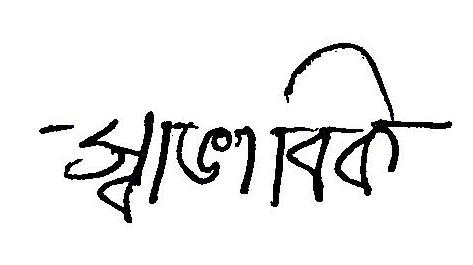 স্বাভাবিক